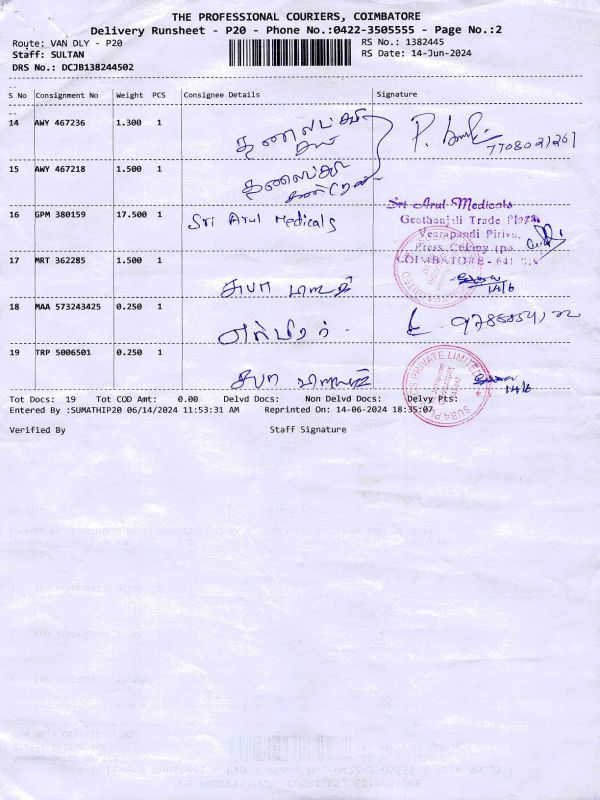 THE PROFESSIONAL COURIERS, COIMBATORE
Delivery Runsheet - P20 - Phone No.:0422-3505555 - Page No.:2
Route: VAN DLY - P20 RS No.: 1382445
Staff: SULTAN RS Date: 14-Jun-2024
DRS No.: DCJB138244502
S No Consignment No Weight PCS Consignee Details Signature
14 AWY 467236 1.300 1
15 AWY 467218 1.500 1
16 GPM 380159 17.500 1 Sri Arul Medicals
Sri Arul Medicals
Geethanjali Trade Plaza,
Veerapandi Pirivu,
Press Colony (po,
COIMBATORE - 641
17 MRT 362285 1.500 1 சுபா
14/6
18 MAA 573243425 0.250 1
19 TRP 5006501 0.250 1 சுபா
PRIVATE LIMITED
14/6
Tot Docs: 19 Tot COD Amt: 0.00 Delvd Docs: Non Delvd Docs: Delvy Pts:
Entered By :SUMATHIP20 06/14/2024 11:53:31 AM Reprinted On: 14-06-2024 18:35:07
Verified By Staff Signature